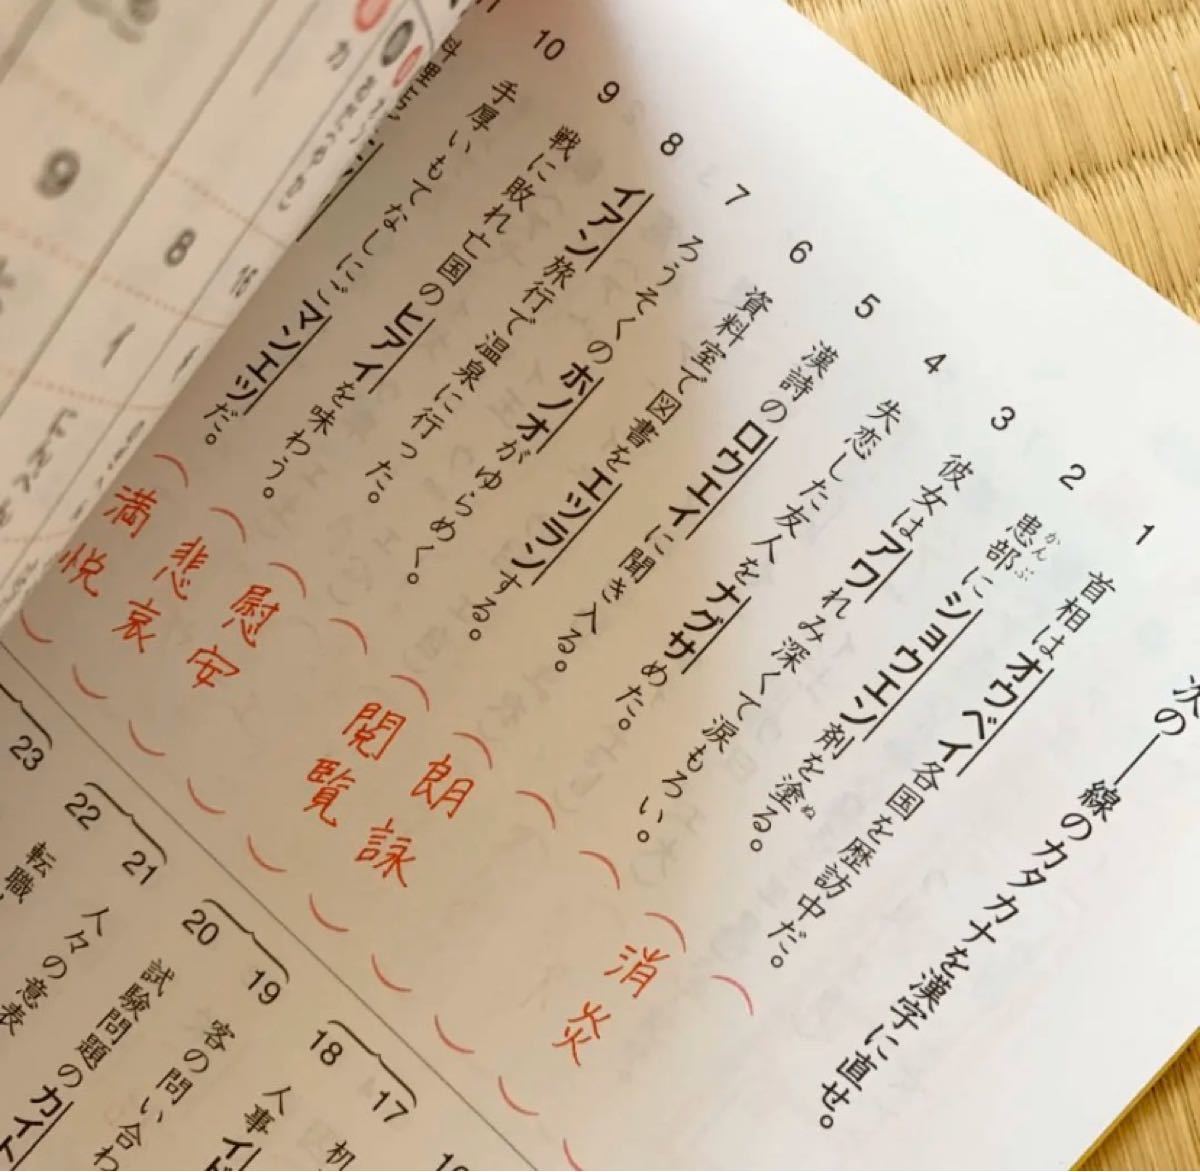 次の―線のカタカナを漢字に直せ。
1 首相はオウベイ各国を歴訪中だ。
2 患部にショウエン剤を塗る。
かんぶ
ぬ
消炎
3 彼女はアワれみ深くて涙もろい。
4 失恋した友人をナグサめた。
5 漢詩のロウエイに聞き入る。
朗詠
6 資料室で図書をエツランする。
閲覧
7 ろうそくのホノオがゆらめく。
8 イアン旅行で温泉に行った。
慰安
9 戦に敗れ亡国のヒアイを味わう。
悲哀
10 手厚いもてなしにごマンエツだ。
満悦
17
18
人事
19
客の問い合わ
20
試験問題のカイト
21
人々の意表
22
転職
23
9
8
16
1